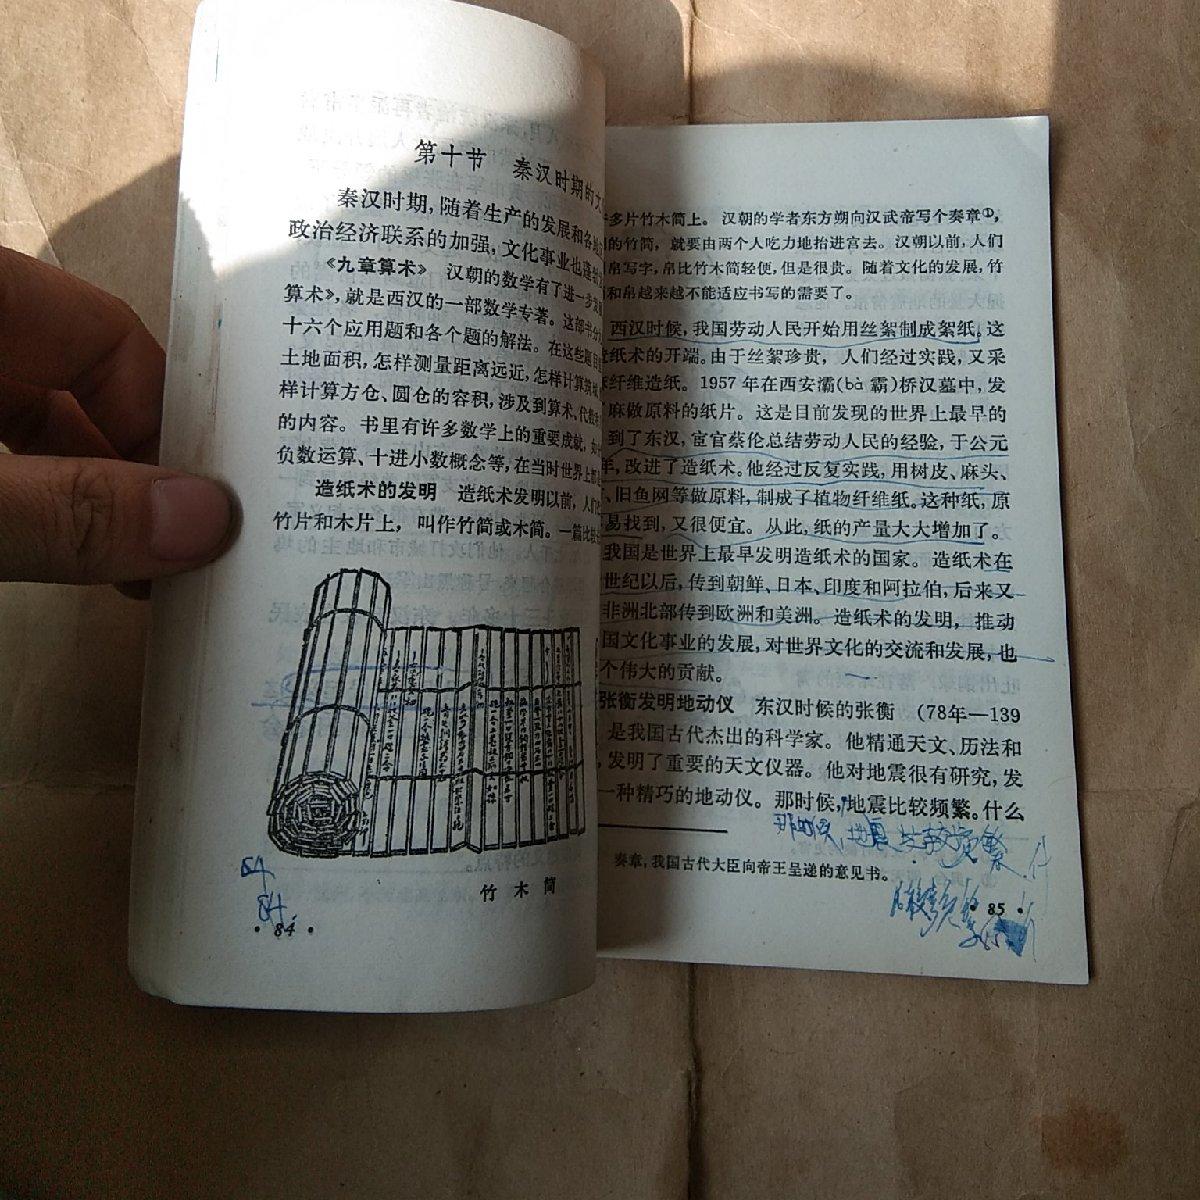 第十节 秦汉时期的
秦汉时期,随着生产的发展和各
政治经济联系的加强,文化事业也蓬
《九章算术》 汉朝的数学有了进一步
算术》,就是西汉的一部数学专著。这部书分
十六个应用题和各个题的解法。在这些题目
土地面积,怎样测量距离远近,怎样计算筑城
样计算方仓、圆仓的容积,涉及到算术、代数
的内容。书里有许多数学上的重要成就,如
负数运算、十进小数概念等,在当时世界上都
造纸术的发明 造纸术发明以前,人们
竹片和木片上, 叫作竹简或木简。一篇比较
竹木简
84
84
• 84 •
多片竹木简上。 汉朝的学者东方朔向汉武帝写个奏章①,
的竹简, 就要由两个人吃力地抬进宫去。 汉朝以前,人们
帛写字,帛比竹木简轻便,但是很贵。随着文化的发展,竹
和帛越来越不能适应书写的需要了。
西汉时候,我国劳动人民开始用丝絮制成絮纸,这
纸术的开端。由于丝絮珍贵, 人们经过实践,又采
纤维造纸。1957年在西安灞(bà 霸)桥汉墓中,发
麻做原料的纸片。这是目前发现的世界上最早的
到了东汉,宦官蔡伦总结劳动人民的经验,于公元
年,改进了造纸术。他经过反复实践,用树皮、麻头、
、旧鱼网等做原料,制成了植物纤维纸。这种纸,原
易找到,又很便宜。从此,纸的产量大大增加了。
我国是世界上最早发明造纸术的国家。造纸术在
世纪以后,传到朝鲜、日本、印度和阿拉伯,后来又
非洲北部传到欧洲和美洲。造纸术的发明,推动
国文化事业的发展,对世界文化的交流和发展,也
个伟大的贡献。
张衡发明地动仪 东汉时候的张衡 (78年—139
是我国古代杰出的科学家。他精通天文、历法和
,发明了重要的天文仪器。他对地震很有研究,发
一种精巧的地动仪。那时候,地震比较频繁。什么
那时候,地震比较频繁
奏章,我国古代大臣向帝王呈递的意见书。
• 85 •